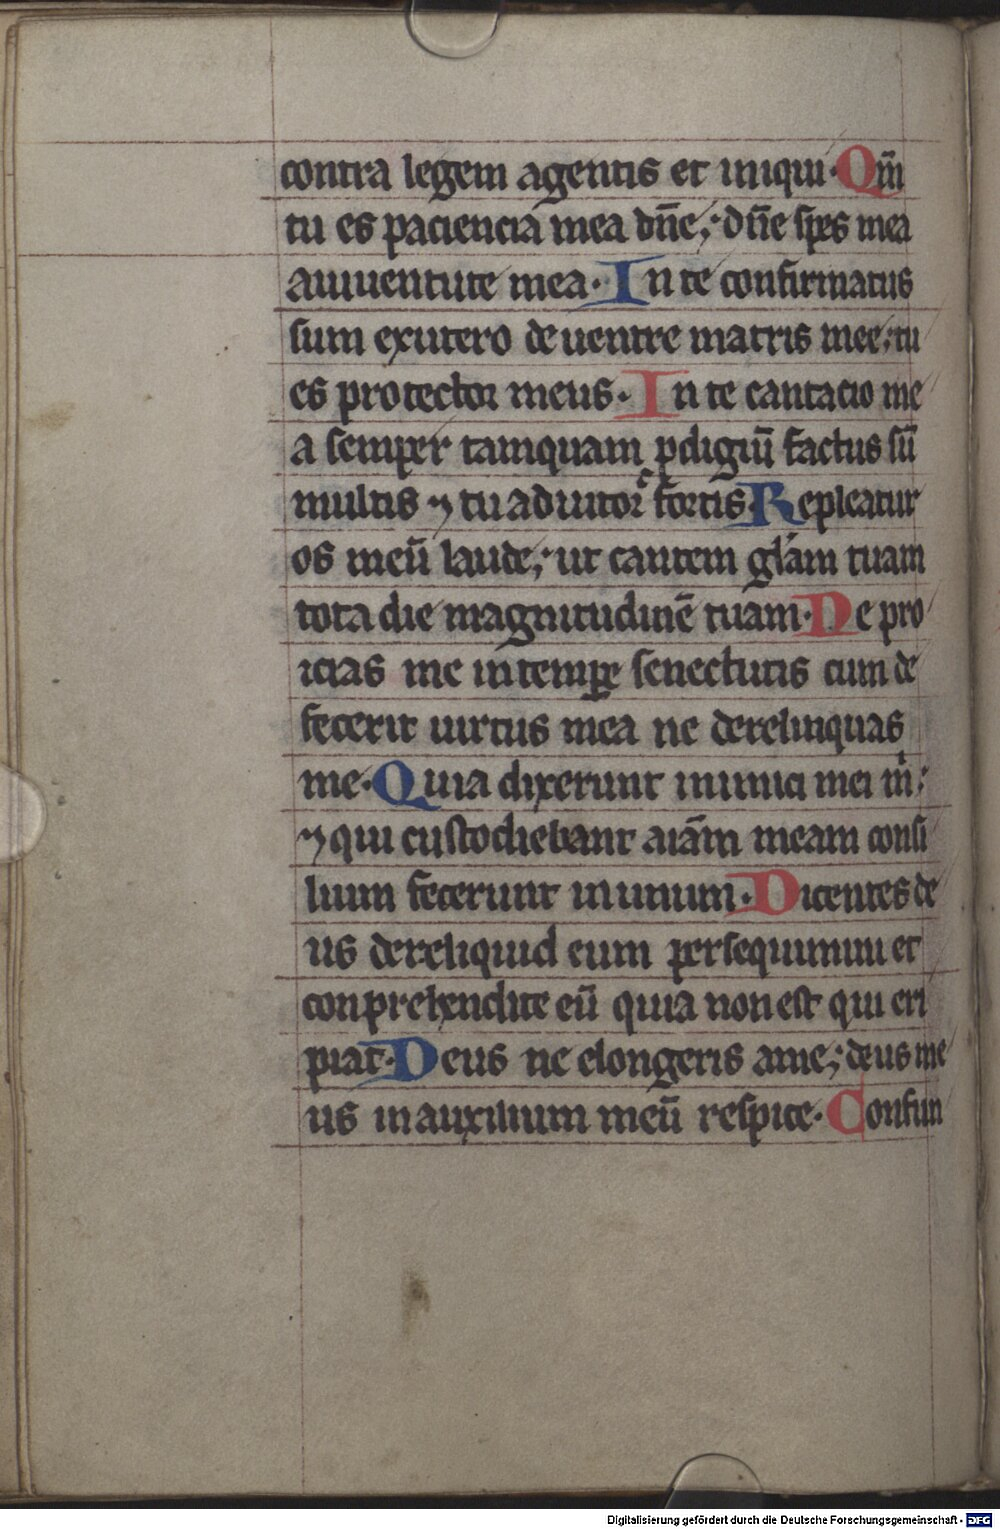 contra legem agentis et iniqui. Qm̄
tu es paciencia mea dn̄e; dn̄e spes mea
a iuuentute mea. In te confirmatus
sum ex utero de uentre matris mee; tu
es protector meus. In te cantacio me
a semper tamquam ꝓdigiū factus sū
multis ⁊ tu adiutor fortis Repleatur
os meū laude; ut cantem glam̄ tuam
tota die magnitudinē tuam. De pro
icias me in tempꝑe senectutis cum de
fecerit uirtus mea ne derelinquas
me. Quia dixerunt inimici mei m̄;
⁊ qui custodiebant aiām meam consi
lium fecerunt in unum. Dicentes de
us dereliquid eum persequimini et
conprehendite eū quia non est qui eri
piat. Deus ne elongeris a me; deus me
us in auxilium meū respice. Confun
Digitalisierung gefördert durch die Deutsche Forschungsgemeinschaft - DFG